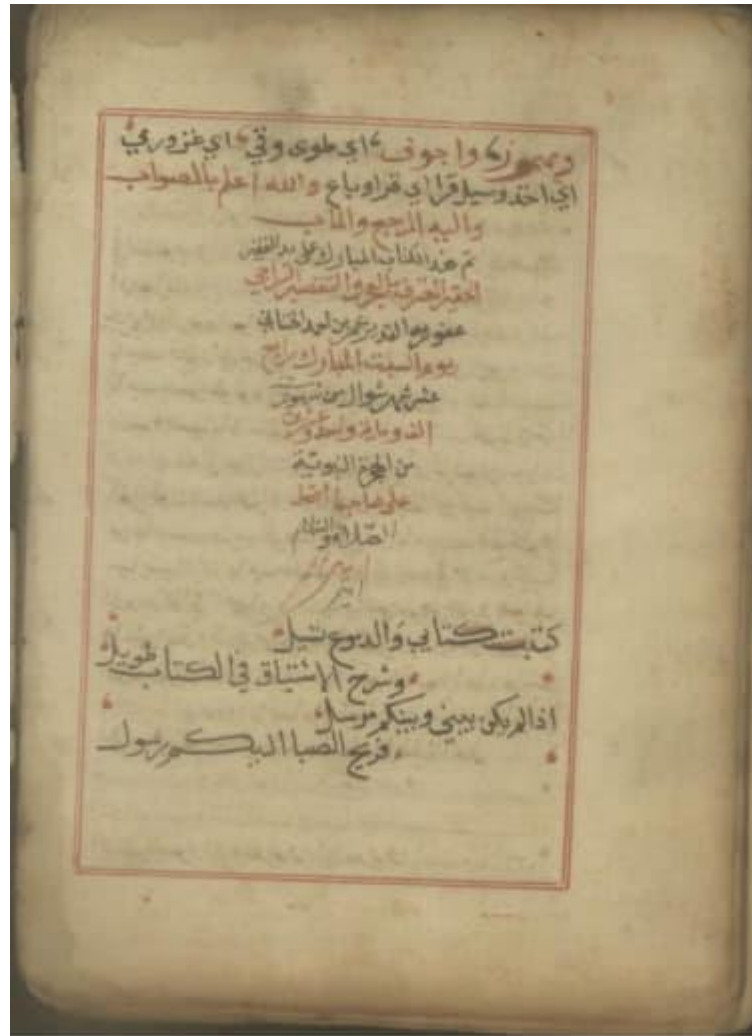 ومهموز واجوف اي طوى وقي اي غز ورمي
اي اخذ وسيل قرا اي قرا وباع والله اعلم بالصواب
واليه المرجع والماب
تم هذا الكتاب المبارك على يد الفقير
الحقير المعترف بالعجز والتقصير الراجي
عفو ربه القدير بن احمد
يوم السبت المبارك رابع
عشر شهر شوال من شهور
الف وماية واحد وعشرين
من الهجرة النبوية
على صاحبها افضل
الصلاة والسلام
امين
كتبت كتابي والدموع تسيل
وشرح الاشتياق في الكتاب طويل
اذا لم يكن بيني وبينكم مرسل
فريح الصبا اليكم رسول